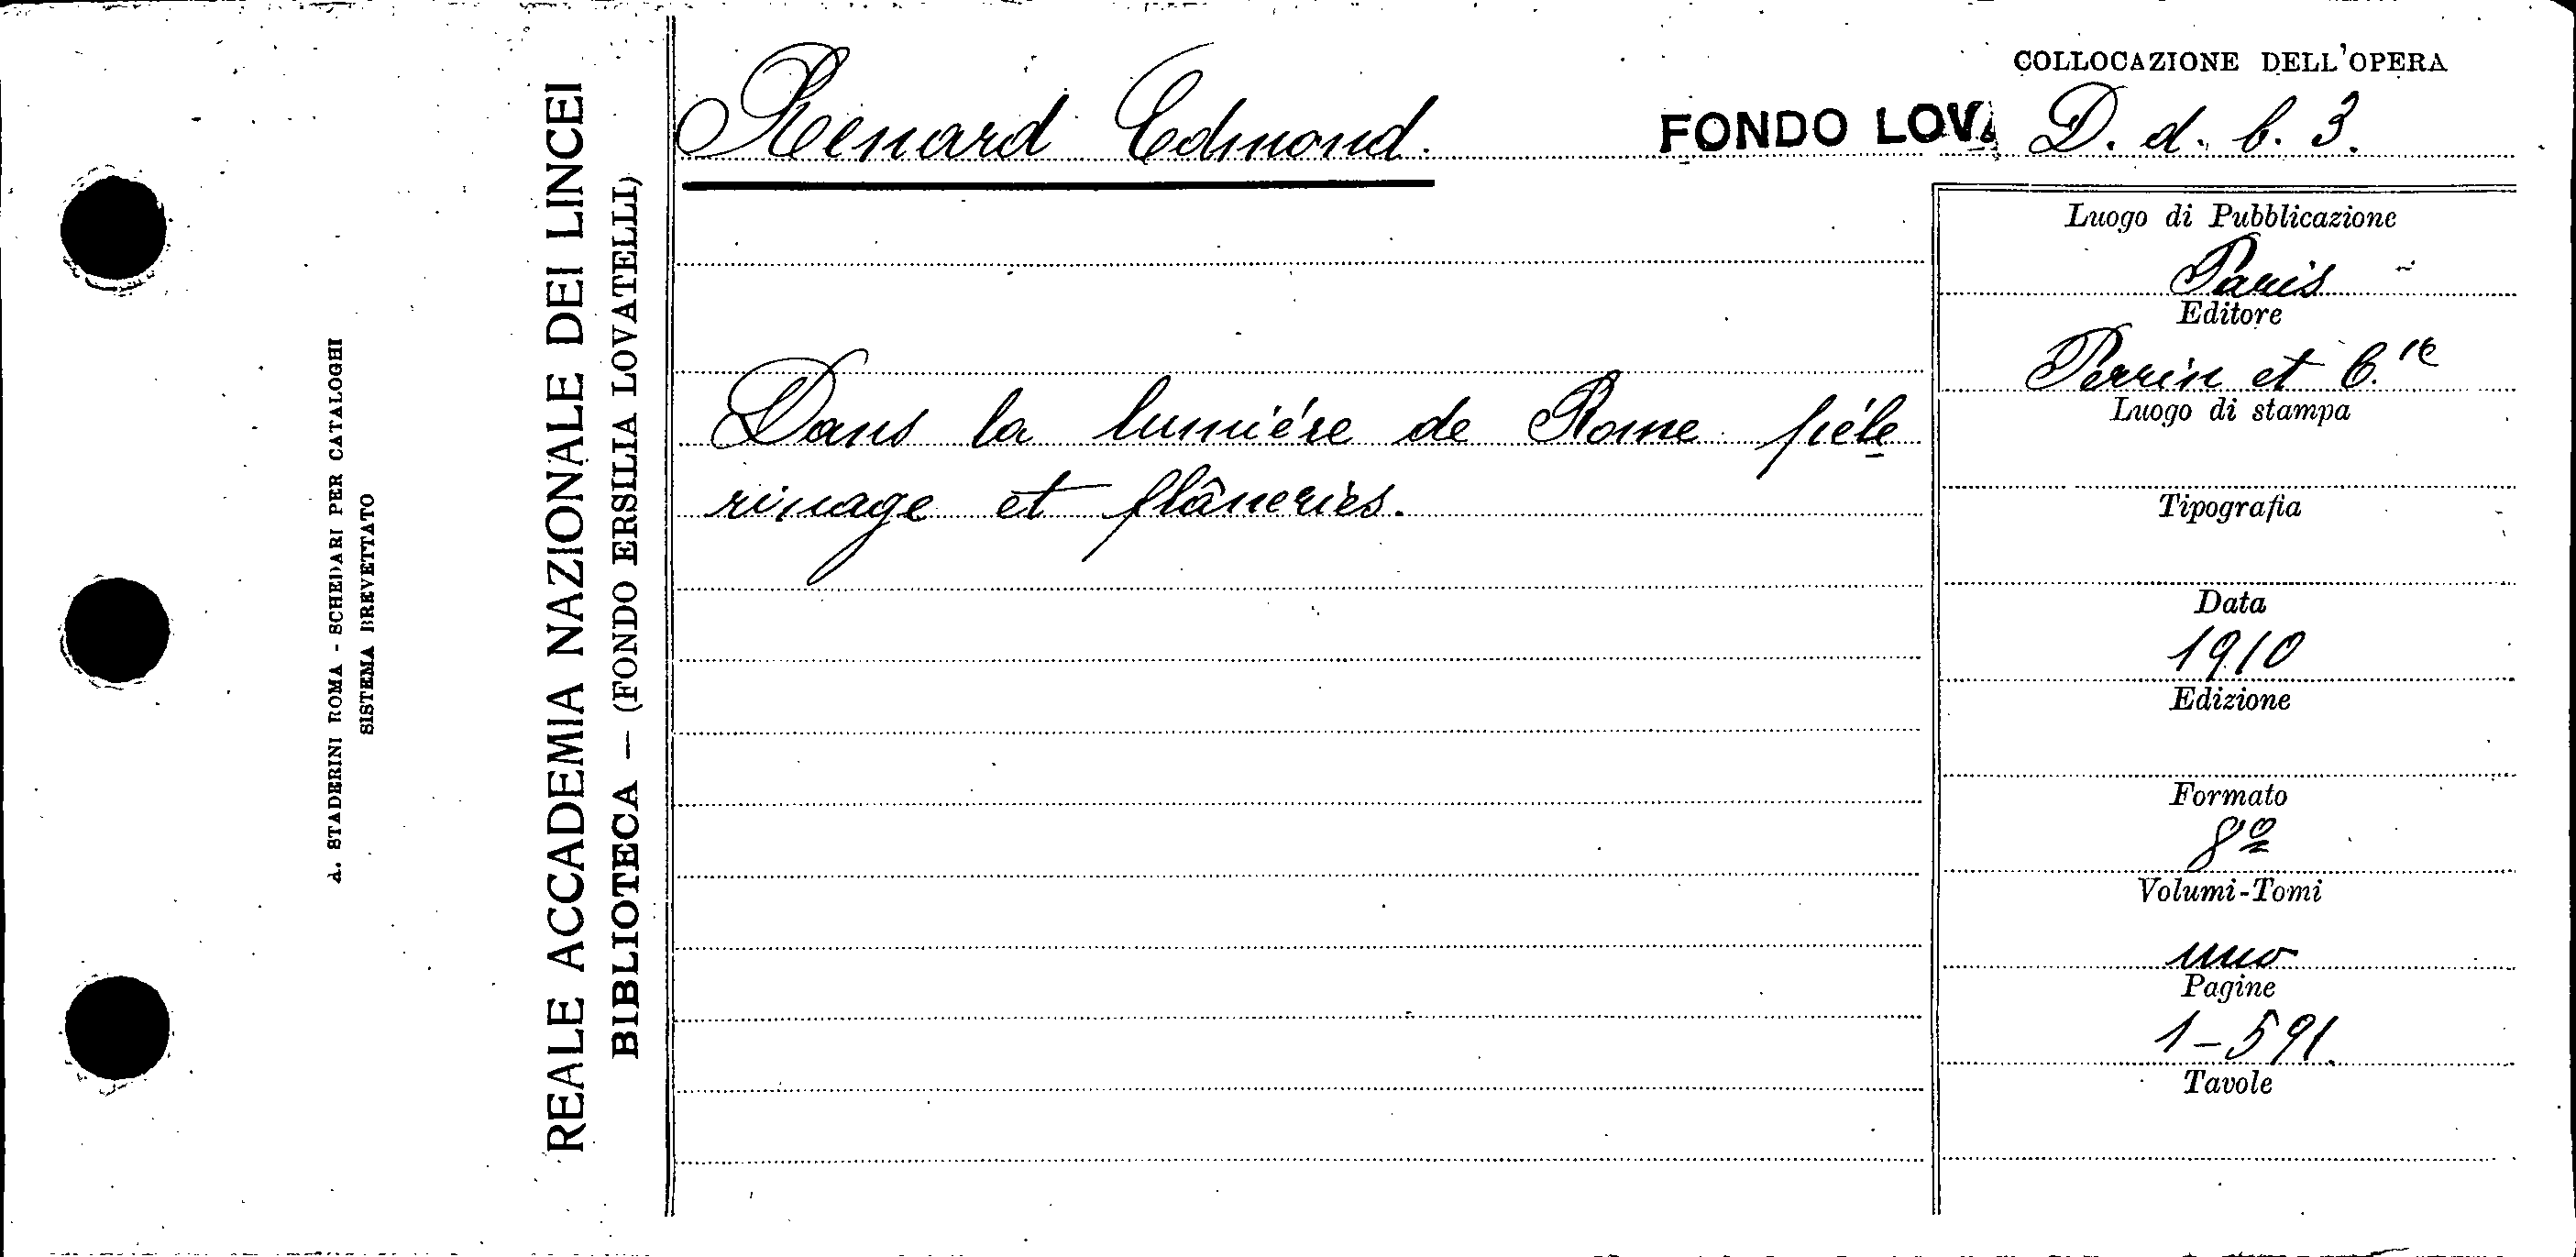 A. STADERINI ROMA - SCHEDARI PER CATALOGHI
SISTEMA BREVETTATO
REALE ACCADEMIA NAZIONALE DEI LINCEI
BIBLIOTECA — (FONDO ERSILIA LOVATELLI)
Renard Edmond.
FONDO LOVA
COLLOCAZIONE DELL'OPERA
D. d. b. 3.
Dans la lumiére de Rome péle
rinage et flâneries.
Luogo di Pubblicazione
Paris
Editore
Perrin et C.ie
Luogo di stampa
Tipografia
Data
1910
Edizione
Formato
8º
Volumi-Tomi
uno
Pagine
1-591.
Tavole